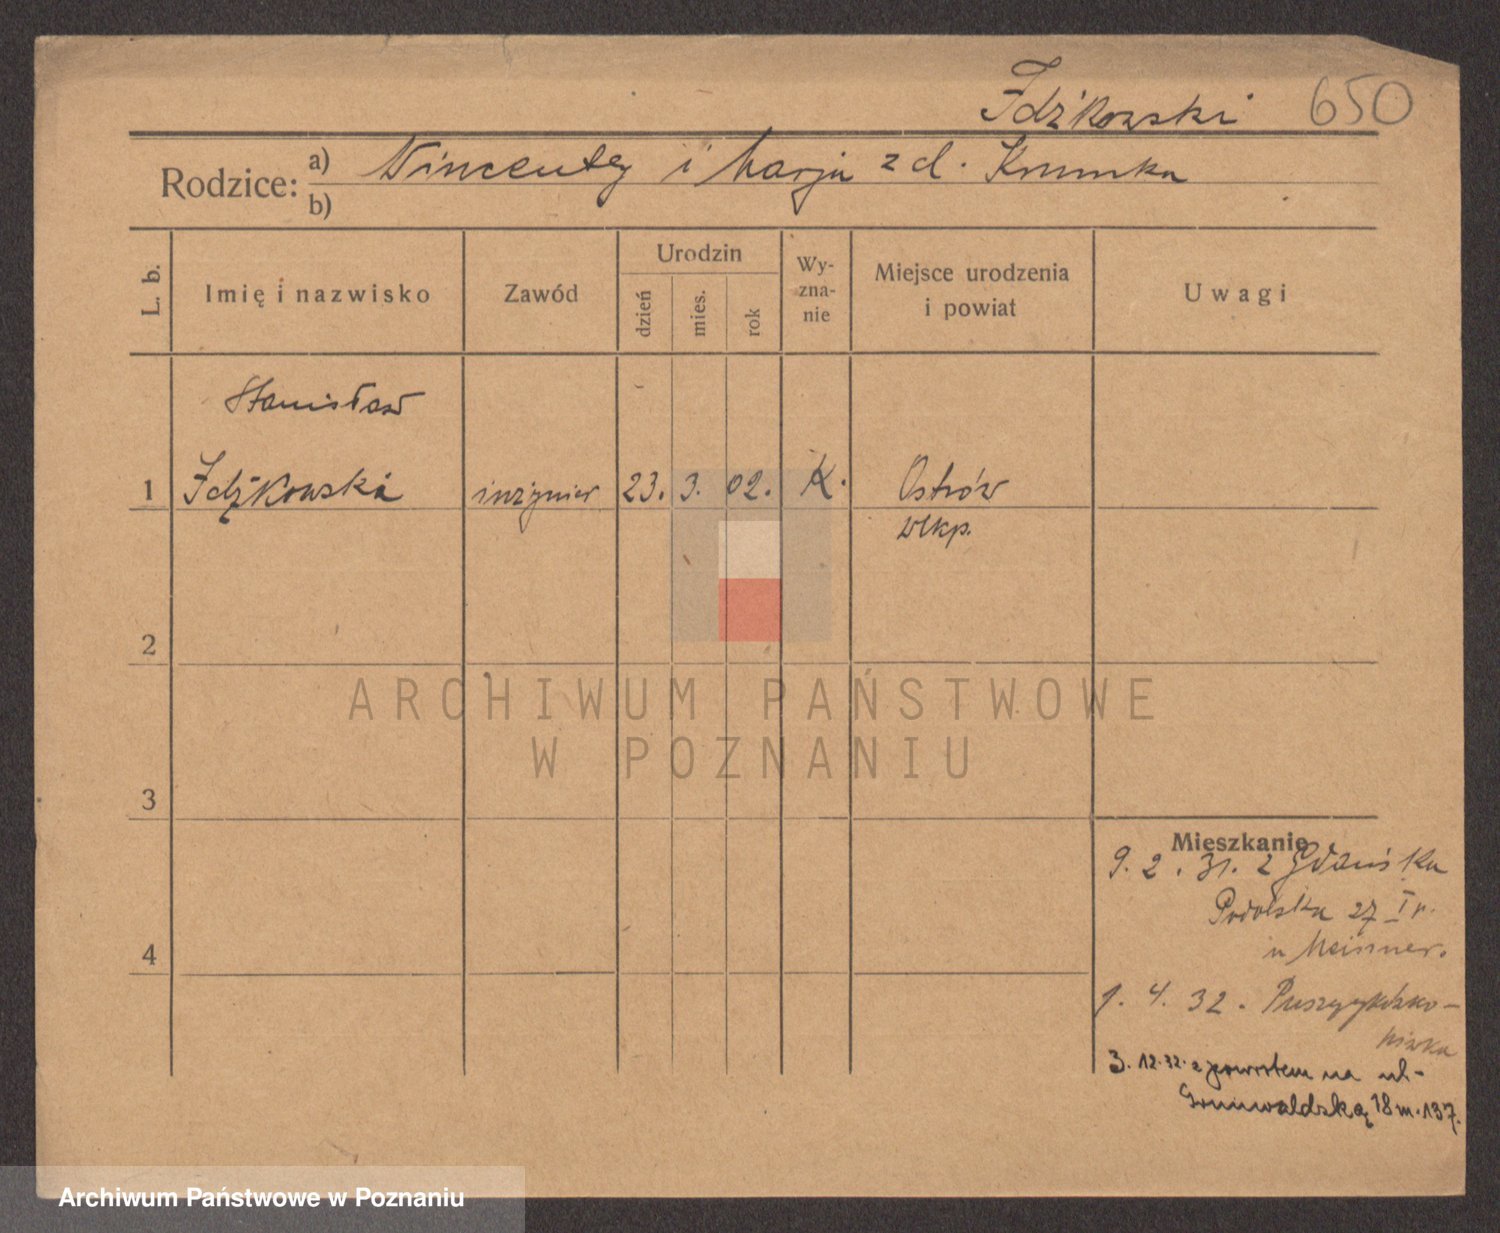 Idźkowski 650
Rodzice: a) Wincenty i Marja z d. Krumka
b)
L. b. Imię i nazwisko Zawód Urodzin dzień mies. rok Wyznanie Miejsce urodzenia i powiat Uwagi
Stanisław
1 Idźkowski inżynier 23. 3. 02. K. Ostrów
wlkp.
2
ARCHIWUM PAŃSTWOWE
W POZNANIU
3
Mieszkanie
9. 2. 31. z Gdańska
Podolska 27 I p.
4
u Meissner.
1. 4. 32.
3. 12. 32. z powrotem na ul.
Grunwaldzką 18 m. 137.
Archiwum Państwowe w Poznaniu